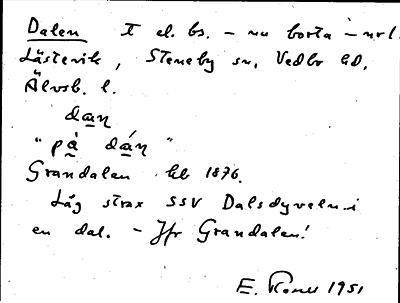 Dalen t el. bs. - nu borta - nrl.
Lästervik, Steneby sn, Vedbo hd,
Älvsb. l.
dan
"på dán"
Grandalen hb 1876.
Låg strax SSV Dalsdyveln i
en dal. - Jfr Grandalen!
E. 1951